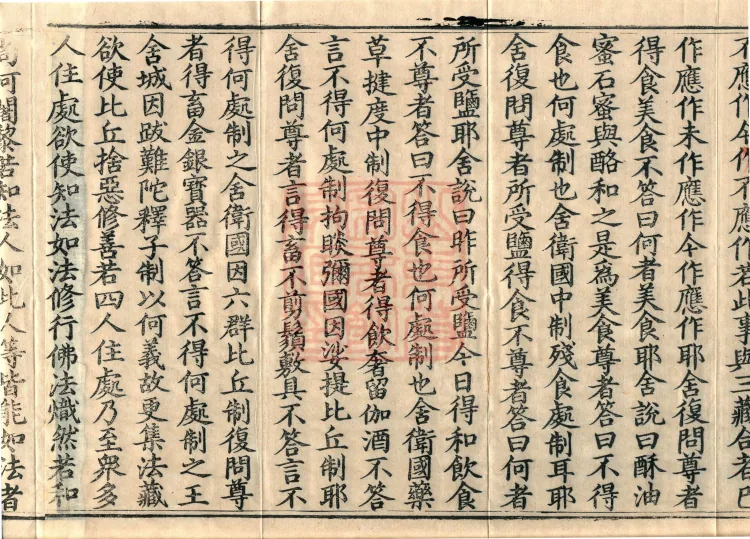 不應作今作不應作若此事與三藏合者已
作應作未作應作今作應作耶舍復問尊者
得食美食不答曰何者美食耶舍說曰酥油
蜜石蜜與酪和之是為美食尊者答曰不得
食也何處制也舍衛國中制殘食處制耳耶
舍復問尊者所受鹽得食不尊者答曰何者
所受鹽耶舍說曰昨所受鹽今日得和飲食
不尊者答曰不得食也何處制也舍衛國藥
草揵度中制復問尊者得飲奢留伽酒不答
言不得何處制拘睒彌國因娑提比丘制耶
舍復問尊者言得畜不剪鬚敷具不答言不
得何處制之舍衛國因六群比丘制復問尊
者得畜金銀寶器不答言不得何處制之王
舍城因跋難陀釋子制以何義故更集法藏
欲使比丘捨惡修善若四人住處乃至眾多
人住處欲使知法如法修行佛法熾然若和
尚阿闍黎若知法人如此人等皆能如法者